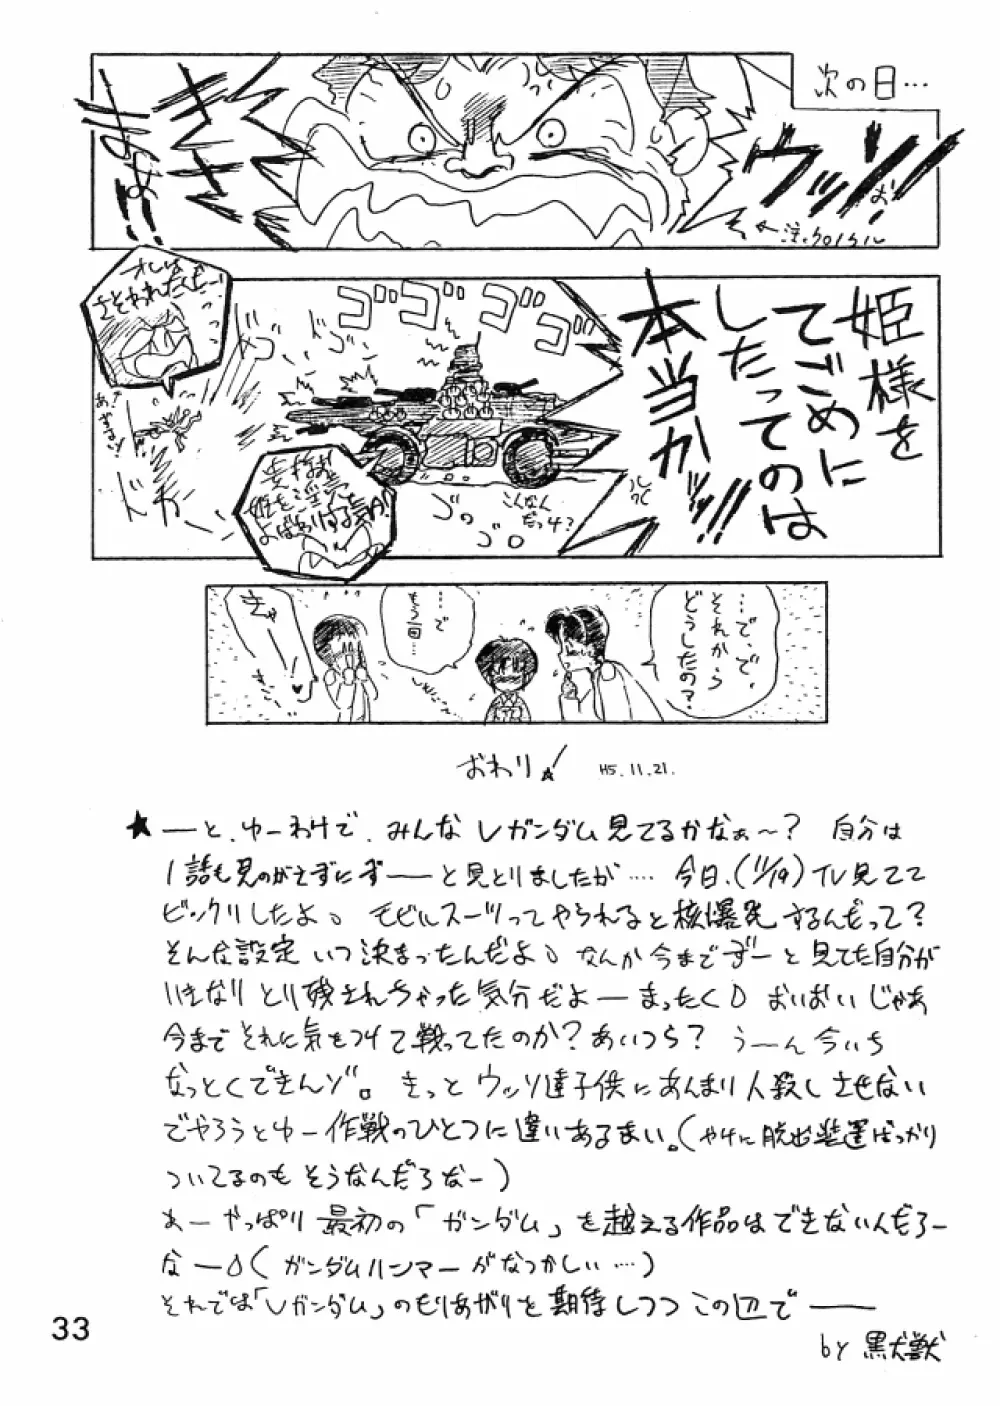 次の日…
ウッソ
お!
←注.クロノクル
きさまぁ!!
姫様を
てごめに
したってのは
本当かーっ!!
ゴゴゴゴ
オレは
さそわれたんだー!
ドカーン
こんなん
だっけ?
ゴゴゴ
…で、で、
それから
どうしたの?
…で
もう一回…
きゃー
おわり! H5.11.21.
★ーと、ゆーわけで、みんな Vガンダム見てるかなぁ〜? 自分は
1話も見のがさずにずーーっと見とりましたが…. 今日、(11/19) TV見てて
ビックリしたよ。 モビルスーツってやられると核爆発するんだって?
そんな設定 いつ決まったんだよ。 なんか今までずーと見てた自分が
いきなりとり残されちゃった気分だよー まったく。 おいおい じゃあ
今まで それに気をつけて戦ってたのか? あいつら? うーん 今いち
なっとくできんゾ。 きっと ウッソ達子供にあんまり人殺しさせない
でやろうとゆー作戦のひとつに違いあるまい。(やけに脱出装置ばっかり
ついてるのも そうなんだろなー)
あーやっぱり 最初の「ガンダム」を越える作品はできないんだろー
なー。( ガンダムハンマーがなつかしい…)
それでは「Vガンダム」のもりあがりを期待しつつ この辺で ーー
by 黒犬獣
33